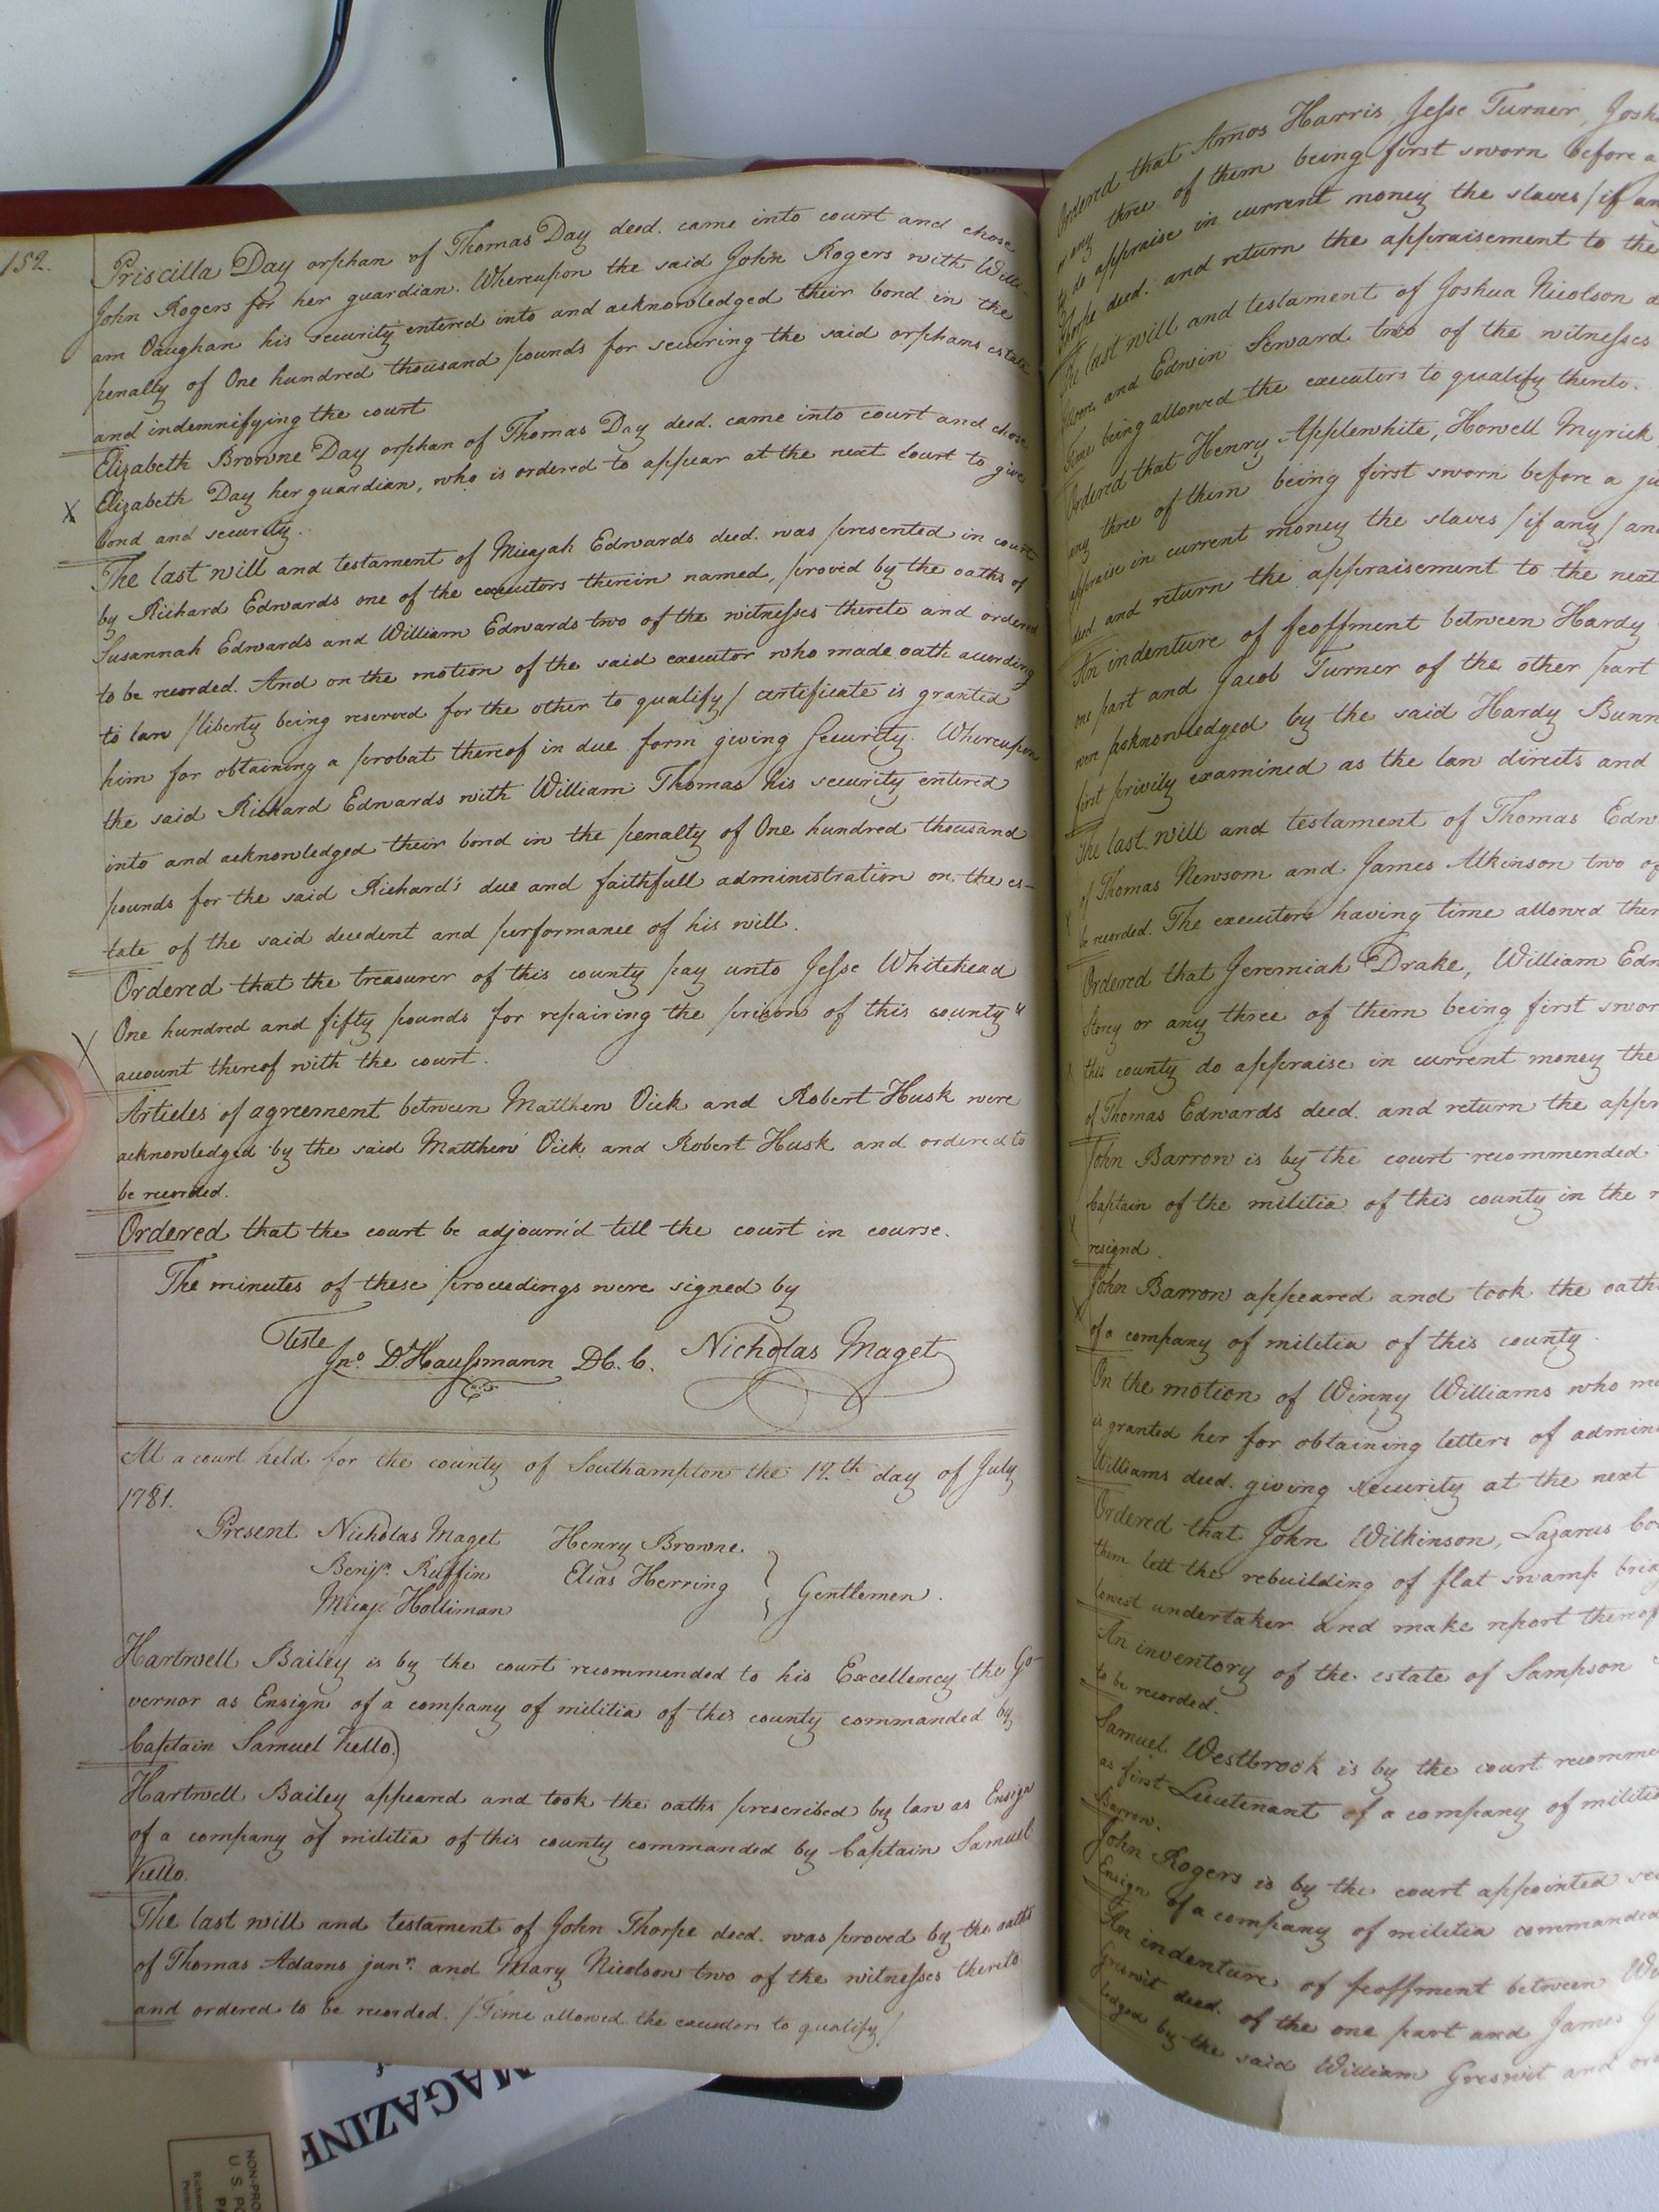 152.
Priscilla Day orphan of Thomas Day decd. came into court and chose
John Rogers for her guardian. Whereupon the said John Rogers with Willi-
am Vaughan his security entered into and acknowledged their bond in the
penalty of One hundred thousand pounds for securing the said orphans estate
and indemnifying the court
Elizabeth Browne Day orphan of Thomas Day decd. came into court and chose
X Elizabeth Day her guardian, who is ordered to appear at the next Court to give
bond and security.
The last will and testament of Micajah Edwards decd. was presented in court
by Richard Edwards one of the executors therein named, proved by the oaths of
Susannah Edwards and William Edwards two of the witnesses thereto and ordered
to be recorded. And on the motion of the said executor who made oath according
to law /liberty being reserved for the other to qualify/ certificate is granted
him for obtaining a probat thereof in due form giving Security. Whereupon
the said Richard Edwards with William Thomas his security entered
into and acknowledged their bond in the penalty of One hundred thousand
pounds for the said Richard's due and faithfull administration on the es-
tate of the said decedent and performance of his will.
Ordered that the treasurer of this county pay unto Jesse Whitehead
X One hundred and fifty pounds for repairing the prison of this county "
account thereof with the court.
Articles of agreement between Matthew Vick and Robert Husk were
acknowledged by the said Matthew Vick and Robert Husk and ordered to
be recorded.
Ordered that the court be adjourn'd till the court in course.
The minutes of these proceedings were signed by
Teste
Jno. D'Haussmann D C. C. Nicholas Maget
At a court held for the county of Southampton the 12th. day of July
1781.
Present Nicholas Maget Henry Browne.
Benja. Ruffin Elias Herring } Gentlemen.
Micaj. Holliman
Hartwell Bailey is by the court recommended to his Excellency the Go-
vernor as Ensign of a company of militia of this county commanded by
Captain Samuel Kello.
Hartwell Bailey appeared and took the oaths prescribed by law as Ensign
of a company of militia of this county commanded by Captain Samuel
Kello.
The last will and testament of John Thorpe decd. was proved by the oaths
of Thomas Adams junr. and Mary Nicolson two of the witnesses thereto
and ordered to be recorded. /Time allowed the executors to qualify/
Ordered that Amos Harris, Jesse Turner, Josh
or any three of them being first sworn before a
to do appraise in current money the slaves /if an
Thorpe decd. and return the appraisement to the
The last will and testament of Joshua Nicolson d
and Edwin Seward two of the witnesses
Time being allowed the executors to qualify thereto.
Ordered that Henry Applewhite, Howell Myrick
any three of them being first sworn before a ju
appraise in current money the slaves /if any/ an
decd. and return the appraisement to the next
An indenture of feoffment between Hardy
one part and Jacob Turner of the other part
were acknowledged by the said Hardy Bunn
first privily examined as the law directs and
The last will and testament of Thomas Edw
of Thomas Newsom and James Atkinson two of
be recorded. The executors having time allowed ther
Ordered that Jeremiah Drake, William Edw
Storey or any three of them being first swor
this county do appraise in current money the
of Thomas Edwards decd. and return the appr
John Barrow is by the court recommended
Captain of the militia of this county in the r
resignd.
John Barron appeared and took the oath
of a company of militia of this county.
On the motion of Winny Williams who m
is granted her for obtaining letters of admin
Williams decd. giving security at the next
Ordered that John Wilkinson, Lazarus Co
them lett the rebuilding of flat swamp brid
lowest undertaker and make report thereof
An inventory of the estate of Sampson
to be recorded.
Samuel Westbrook is by the court recomme
as first Lieutenant of a company of militia
Barrow.
John Rogers is by the court appointed sec
Ensign of a company of militia commanded
An indenture of feoffment between Wi
Greswit decd. of the one part and James G
ledged by the said William Greswit and or
MAGAZINE
of
NON-PRO
U. S. PO
PA
Richmo
Permi